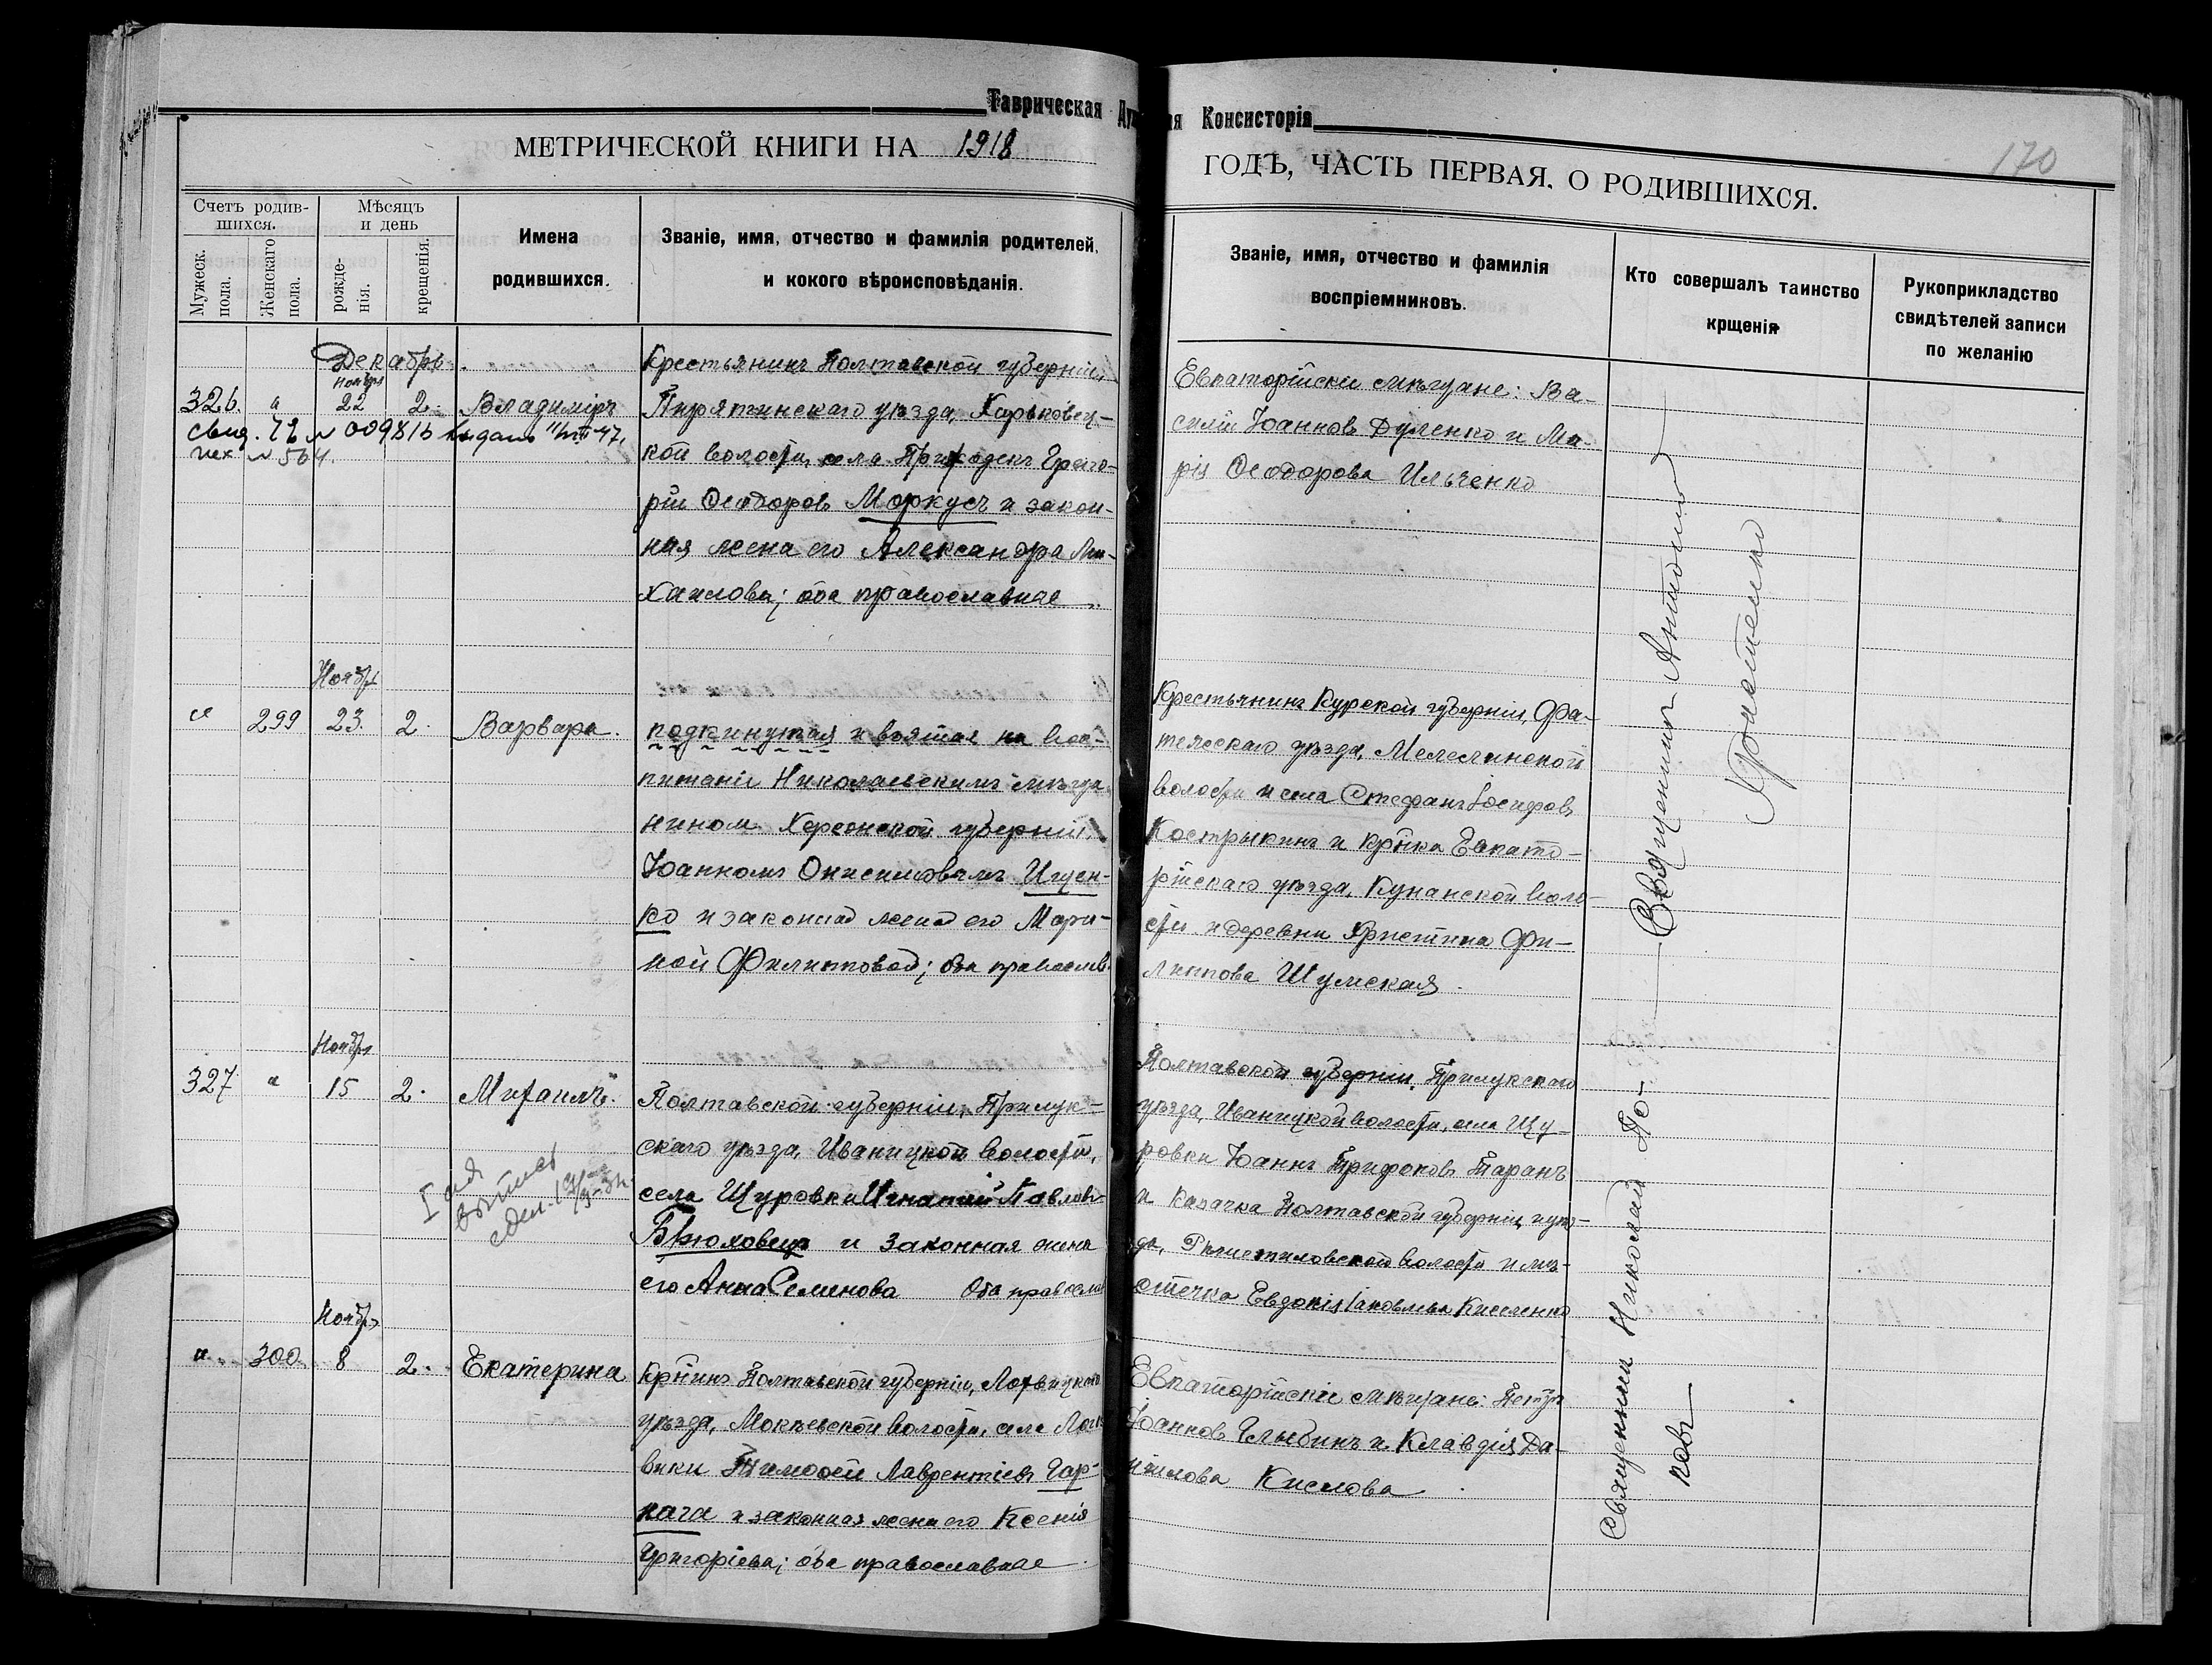 Таврическая Ду ая Консисторія
МЕТРИЧЕСКОЙ КНИГИ НА 1918
ГОДЪ, ЧАСТЬ ПЕРВАЯ, О РОДИВШИХСЯ.
170
Счетъ родив-
шихся.
Мужеск.
пола.
Женскаго
пола.
Мѣсяцъ
и день
рожде-
нія.
крещенія.
Имена
родившихся.
Званіе, имя, отчество и фамилія родителей,
и кокого вѣроисповѣданія.
Званіе, имя, отчество и фамилія
воспріемниковъ.
Кто совершалъ таинство
крщенія
Рукоприкладство
свидѣтелей записи
по желанію
Декабрь
Ноября
326. " 22 2. Владиміръ
свид. № 009816 выдано 47.
исх № 564.
Крестьянинъ Полтавской губерніи,
Пирятинскаго уѣзда, Харьковец-
кой волости, села Приходекъ Григо-
рій Ѳеодоровъ Моркусъ и закон-
ная жена его Александра Ми-
хаилова; оба православные
Евпаторійскіе мѣщане: Ва-
силій Іоанновъ Дуленко и Ма-
рія Ѳеодорова Ильченко
Ноября
" 299 23. 2. Варвара.
подкинутая и взятая на вос-
питаніе Николаевскимъ мѣща
ниномъ Херсонской губерніи
Іоанномъ Онисимовымъ Ищен-
ко и законной женой его Мари-
ной Филипповой; оба православ.
Крестьянинъ Курской губерніи, Фа-
тежскаго уѣзда,
волости и села Стефанъ Іосифовъ
Кострыкинъ и кр-нка Евпато-
рійскаго уѣзда, Кунанской воло-
сти и деревни Христина Фи-
липпова Шумская.
Ноября
327 " 15 2. Михаилъ.
I
выпись
Полтавской губерніи, Прилук-
скаго уѣзда, Иваницкой волости,
села Щуровки Игнатій Павловъ
Брюховецъ и законная жена
его Анна Семенова Оба правосла
Полтавской губерніи, Прилукскаго
уѣзда, Иваницкой волости, села Щу-
ровки Іоаннъ Трифоновъ Таранъ
и казачка Полтавской губерніи и уѣз-
да, Рѣшетиловской волости и мѣ-
стечка Евдокія Іаковлева Киселенко
Ноября
" 300. 8 2. Екатерина
кр-нинъ Полтавской губерніи, Лохвицкаго
уѣзда, Мокѣевской волости, села
вики Тимоѳей Лаврентіевъ Гар-
кача и законная жена его Ксенія
Григоріева; оба православные.
Евпаторійскіе мѣщане: Петръ
Іоанновъ Глыбинъ и Клавдія Да-
ніилова Кислова.
Священникъ Антоній
Священникъ Николай По-
повъ